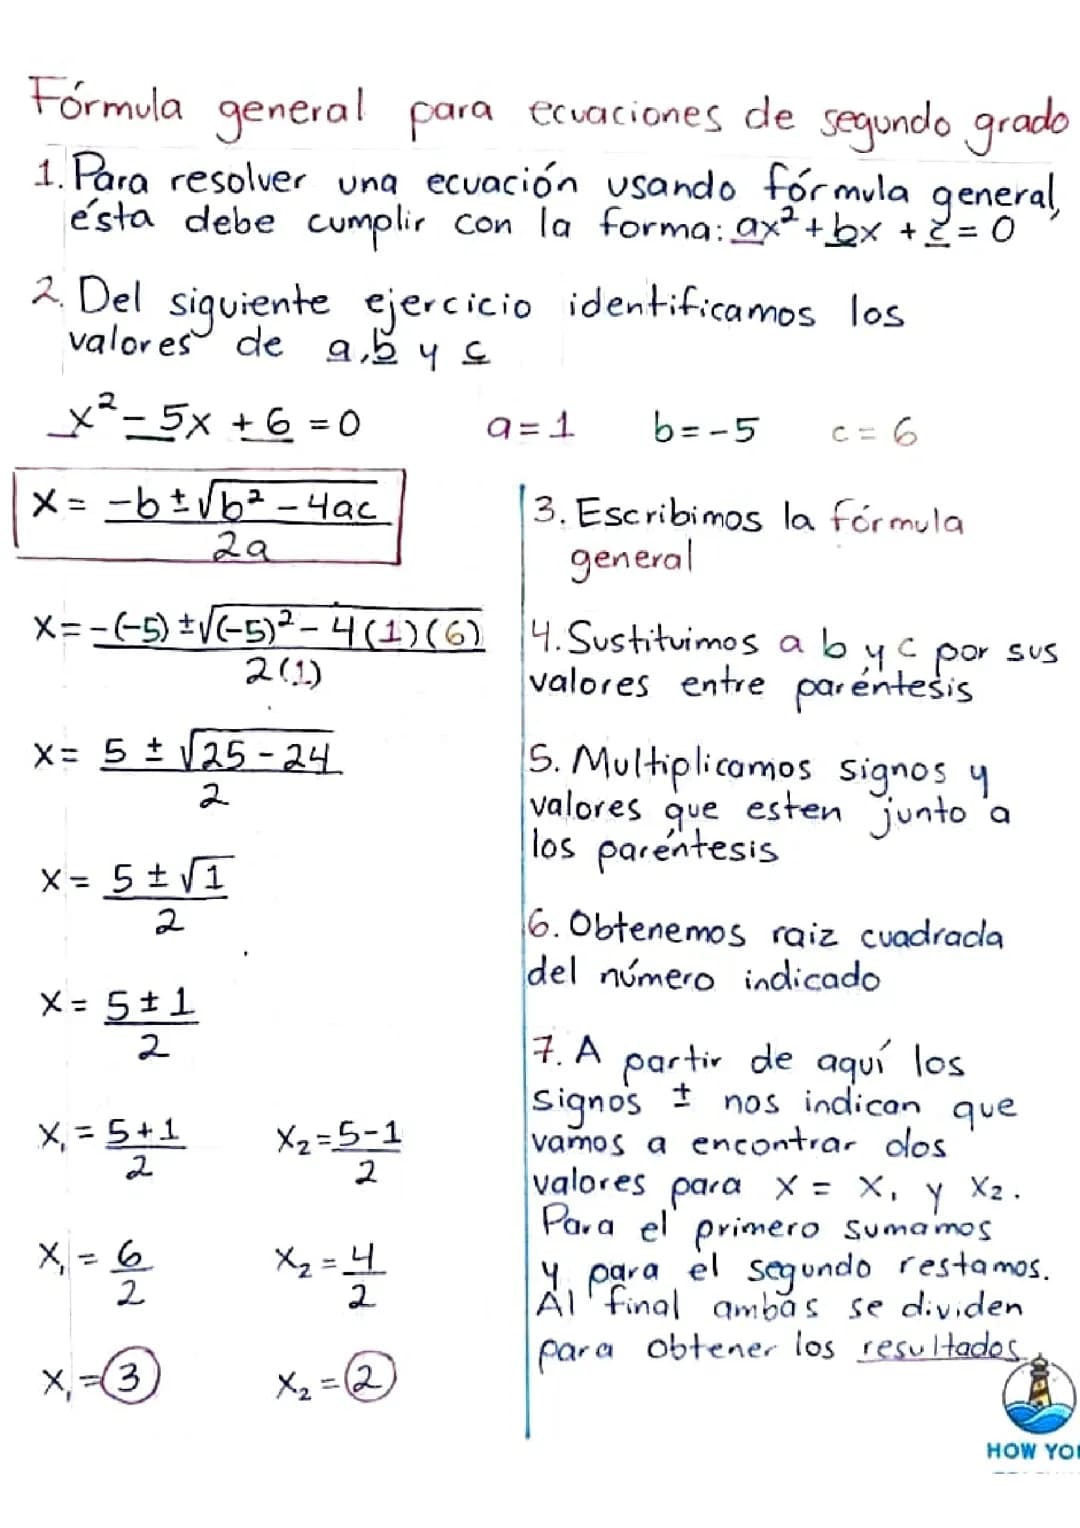 Fórmula general para ecuaciones de segundo grado
1. Para resolver una ecuación usando fórmula general,
ésta debe cumplir con la forma: ax² + bx + c = 0
2. Del siguiente ejercicio identificamos los
valores de a, b y c
x² - 5x + 6 = 0 a = 1 b = -5 c = 6
x = -b ± √b² - 4ac
2a
x = -(-5) ± √(-5)² - 4(1)(6)
2(1)
x = 5 ± √25 - 24
2
x = 5 ± √1
2
x = 5 ± 1
2
x₁ = 5 + 1 x₂ = 5 - 1
2 2
x₁ = 6 x₂ = 4
2 2
x₁ = 3 x₂ = 2
3. Escribimos la fórmula
general
4. Sustituimos a b y c por sus
valores entre paréntesis
5. Multiplicamos signos y
valores que esten junto a
los paréntesis
6. Obtenemos raiz cuadrada
del número indicado
7. A partir de aquí los
signos ± nos indican que
vamos a encontrar dos
valores para x = x₁ y x₂.
Para el primero sumamos
y para el segundo restamos.
Al final ambas se dividen
para obtener los resultados
HOW YO